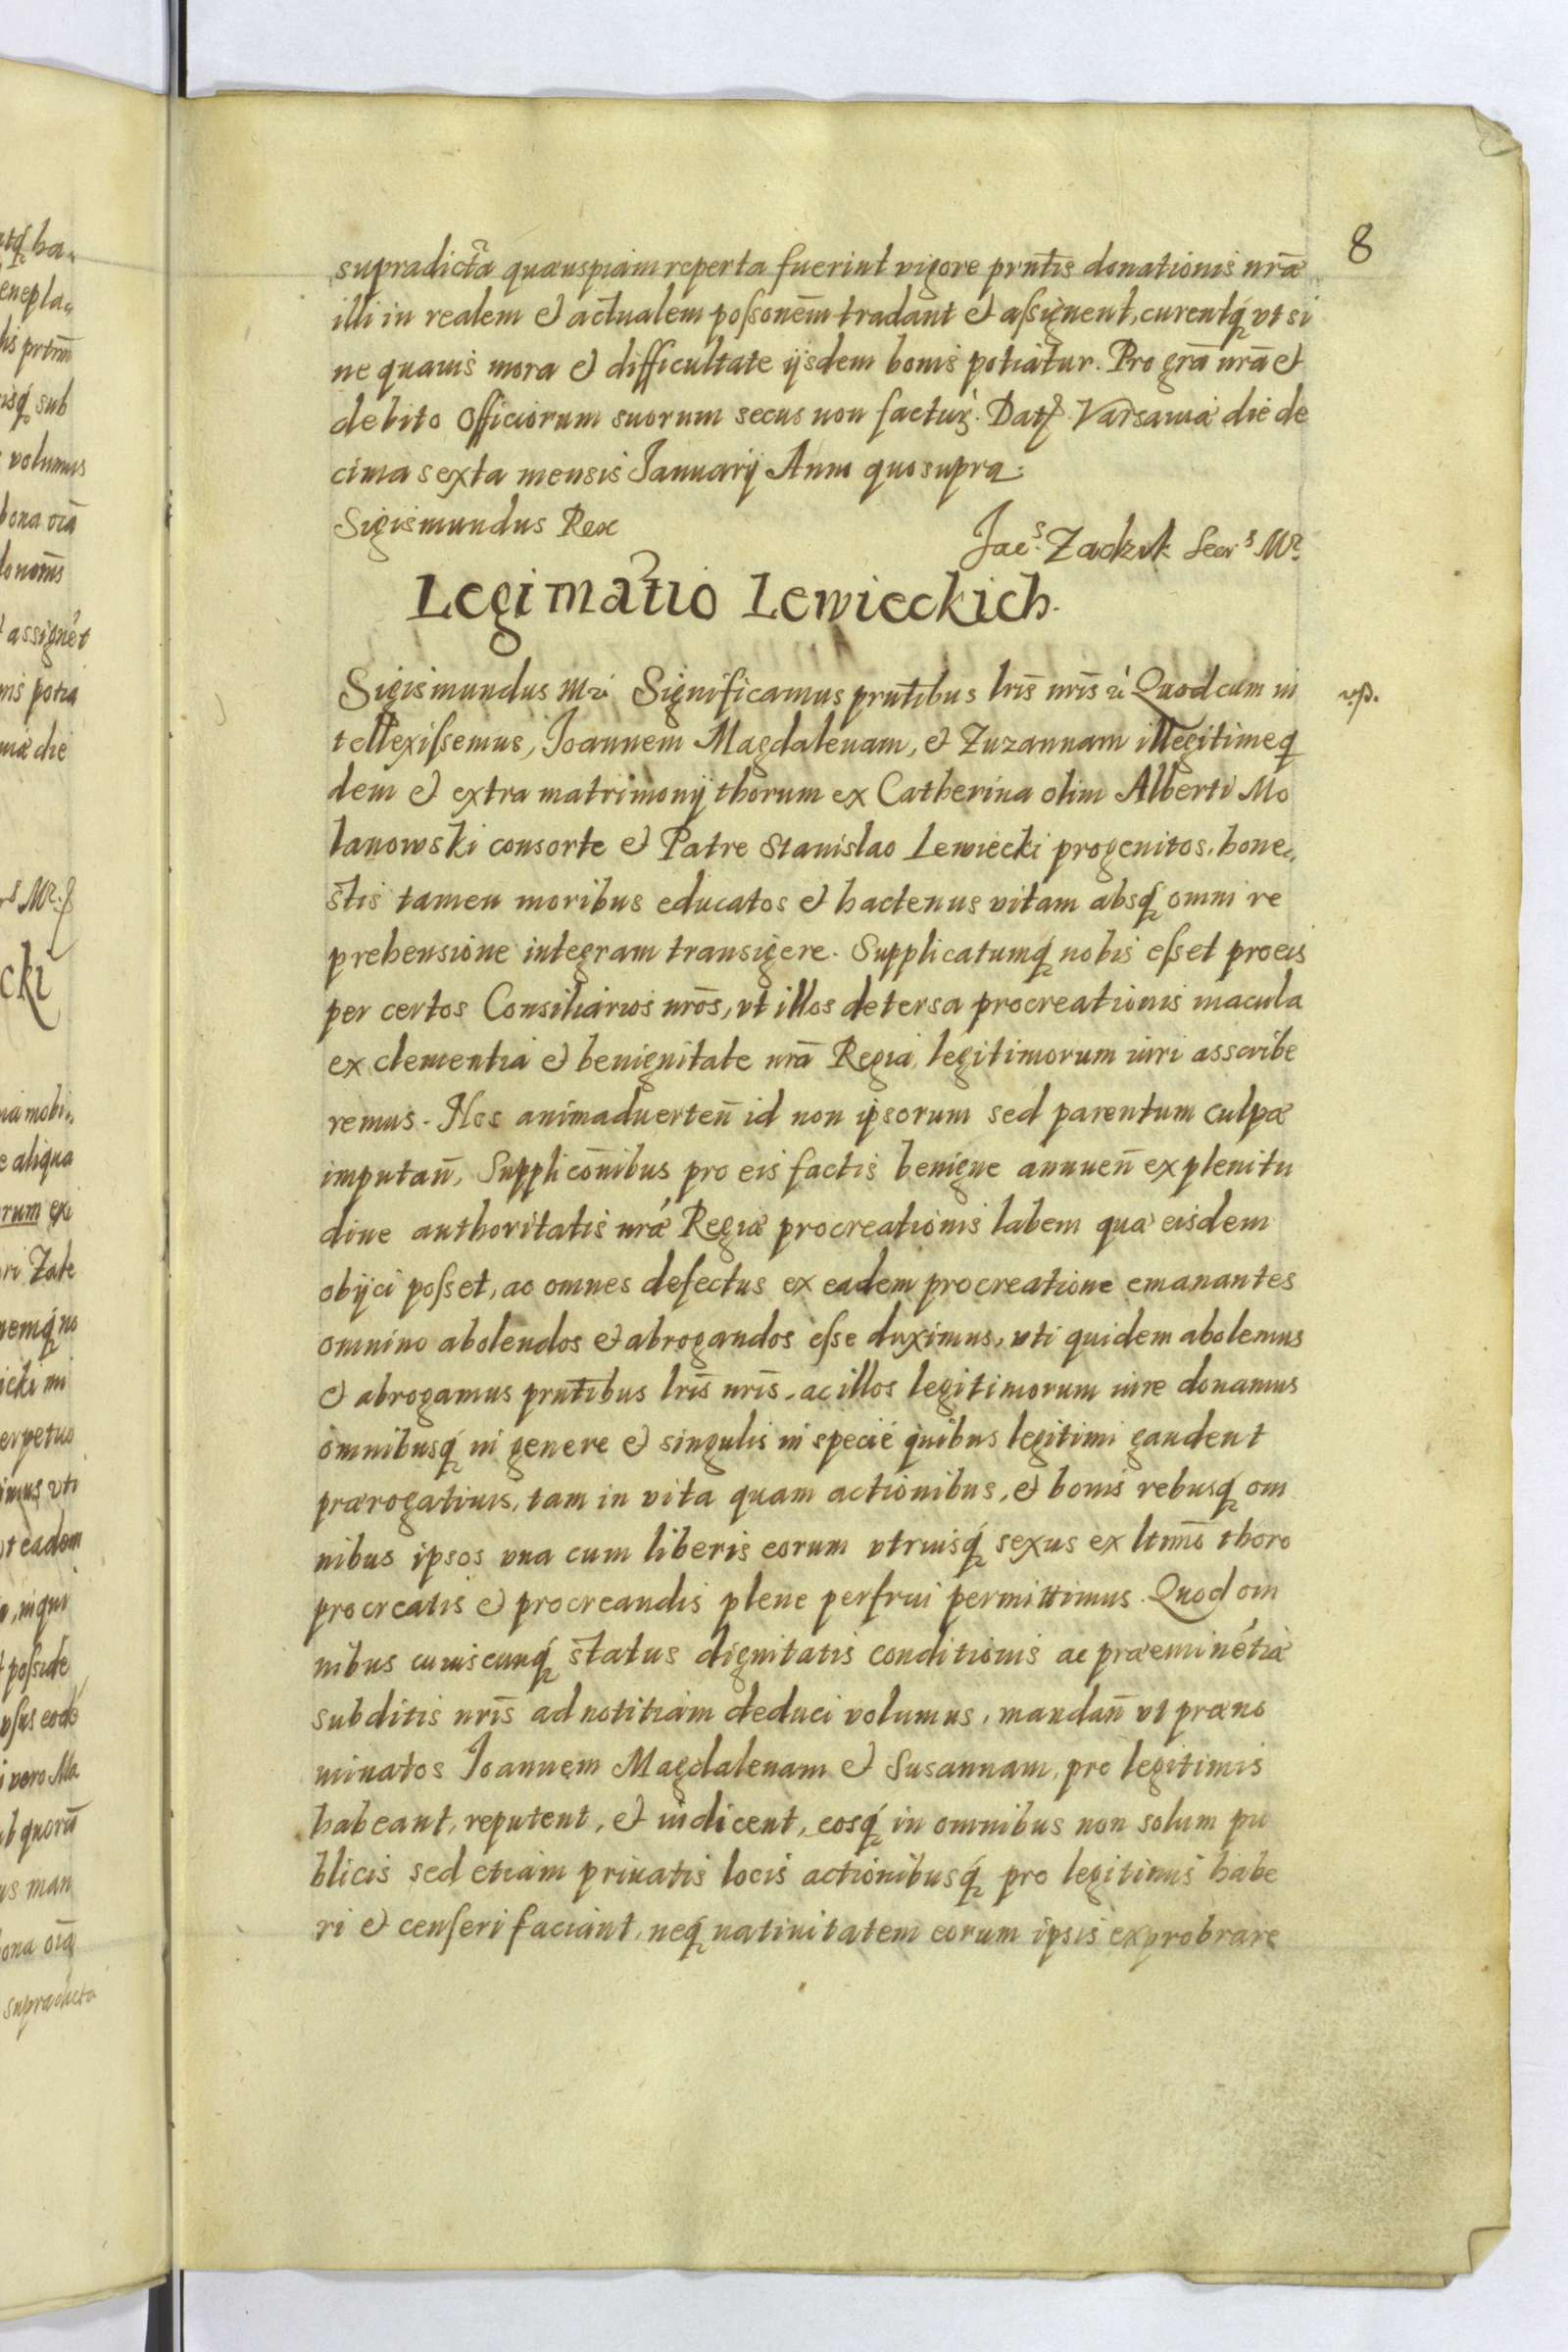 8
supradicta quæuspiam reperta fuerint vigore prñtis donationis nrã
illi in realem et actualem poſsonẽm tradant et aſsignent, curentq́ vt si
ne quauis mora et difficultate ijsdem bonis potiatur. Pro grã nrã et
debito Officiorum suorum secus non factur. Dat Varsauiæ die de
cima sexta mensis Januarij Anno quo supra:
Sigismundus Rex
Jac.s Zadzik Secr.s Mr.
Legimatio Lewieckich.
Sigismundus Significamus prñtibus lris̃ nris̃ Quod cum in
tellexiſsemus, Joannem Magdalenam, et Zuzannam illegitime q
dem et extra matrimonij thorum ex Catherina olim Alberti Mo
lanowski consorte et Patre Stanislao Lewiecki progenitos, hone,,
stis tamen moribus educatos et hactenus vitam absq́ omni re
prehensione integram transigere. Supplicatumq́ nobis eſset pro eis
per certos Consiliarios nros̃, vt illos detersa procreationis macula
ex clementia et benignitate nrã Regia, legitimorum iuri asscribe
remus. Nos animaduerteñ id non ipsorum sed parentum culpæ
imputañ, Suppliconĩbus pro eis factis benigne annueñ ex plenitu
dine authoritatis nræ Regiæ procreationis labem quæ eisdem
obijci poſset, ac omnes defectus ex eadem procreatione emanantes
omnino abolendos et abrogandos eſse duximus, vti quidem abolemus
et abrogamus prñtibus lris̃ nris̃, ac illos legitimorum iure donamus
omnibusq́ in genere et singulis in specie quibus legitimi gaudent
prærogatiuis, tam in vita quam actionibus, et bonis rebusq́ om
nibus ipsos vna cum liberis eorum vtriusq́ sexus ex ltmõ thoro
procreatis et procreandis plene perfrui permittimus. Quod om
nibus cuiuscunq́ status dignitatis conditionis ac præeminẽtiæ
subditis nris̃ ad notitiam deduci volumus, mandañ vt præno
minatos Joannem Magdalenam et Susannam, pro legitimis
habeant, reputent, et iudicent, eosq́ in omnibus non solum pu
blicis sed etiam priuatis locis actionibusq́ pro legitimis habe
ri et cenſeri faciant, neq́ natiuitatem eorum ipsis exprobrare